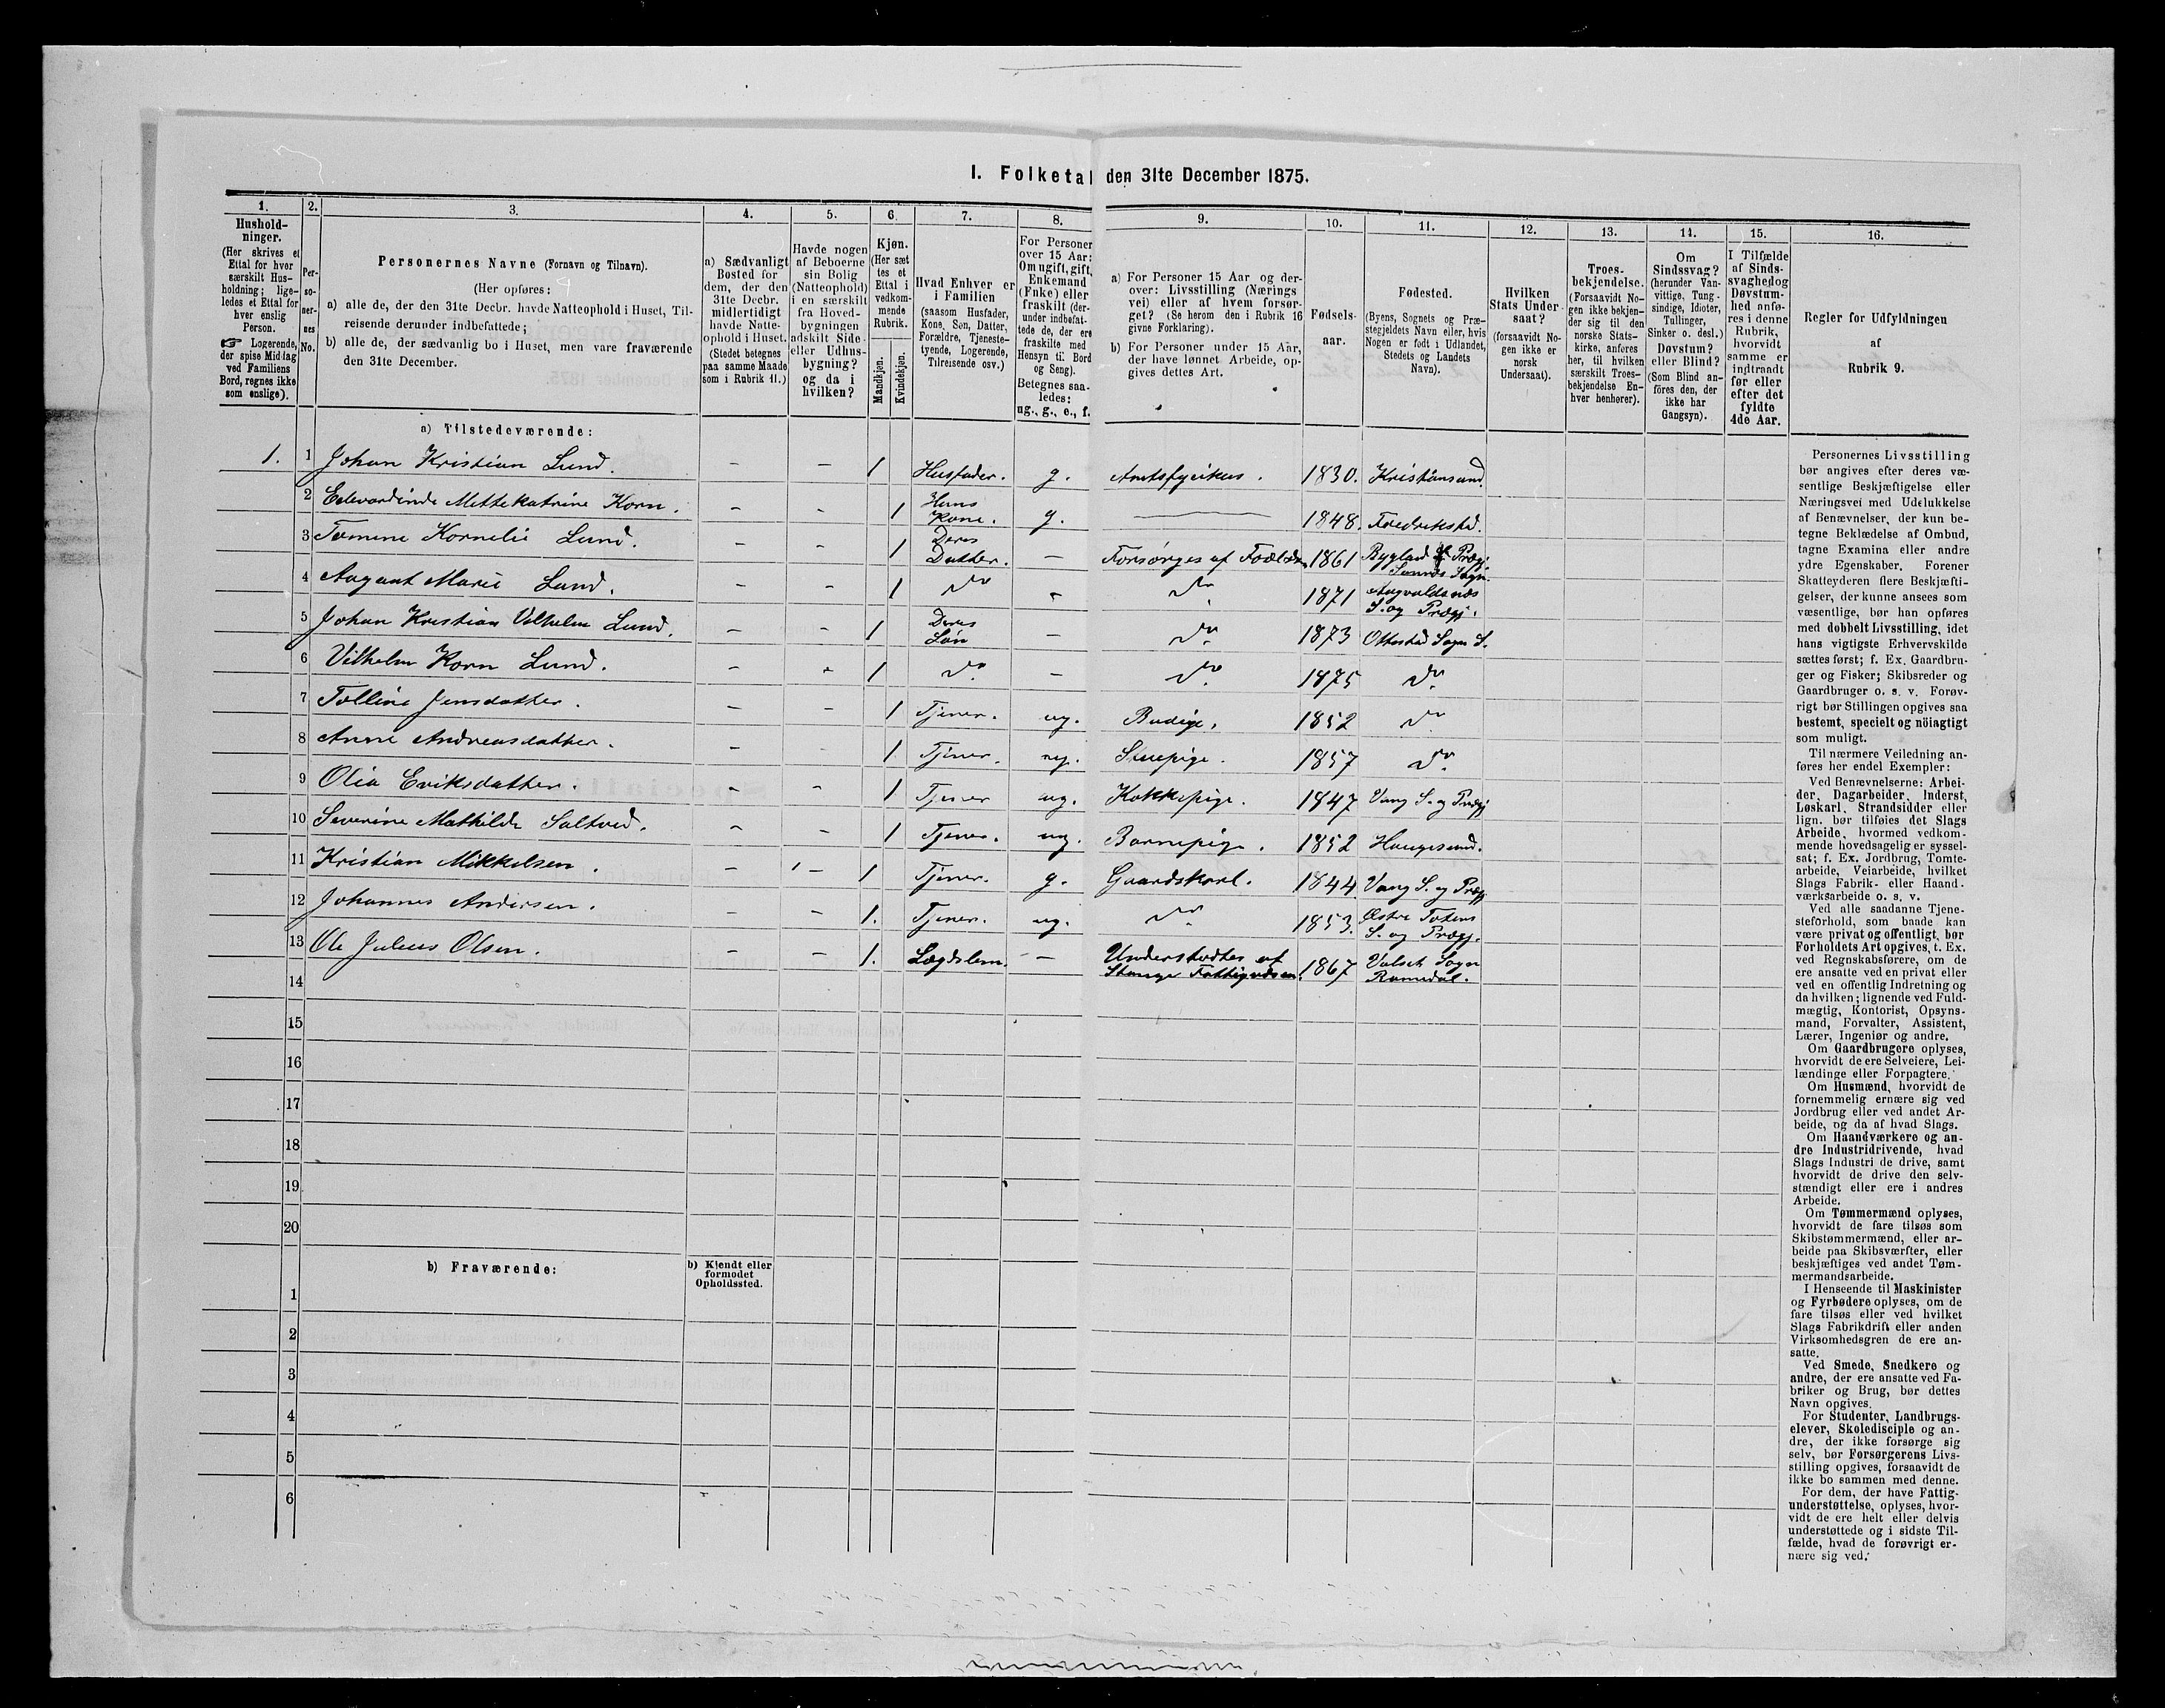 I. Folketal den 31te December 1875.
1.
Hushold-
ninger.
(Her skrives et
Ettal for hver
særskilt Hus-
holdning; lige-
ledes et Ettal for
hver enslig
Person.
☞ Logerende,
der spise Middag
ved Familiens
Bord, regnes ikke
som enslige).
2.
Per-
so-
ner-
nes
No.
3.
Personernes Navne (Fornavn og Tilnavn).
(Her opføres:
a) alle de, der den 31te Decbr. havde Natteophold i Huset, Til-
reisende derunder indbefattede;
b) alle de, der sædvanlig bo i Huset, men vare fraværende
den 31te December.
4.
a) Sædvanligt
Bosted for
dem, der den
31te Decbr.
midlertidigt
havde Natte-
ophold i Huset.
(Stedet betegnes
paa samme Maade
som i Rubrik 11.)
5.
Havde nogen
af Beboerne
sin Bolig
(Natteophold)
i en særskilt
fra Hoved-
bygningen
adskilt Side-
eller Udhus-
bygning?
og da i
hvilken?
6.
Kjøn.
(Her sæt
tes et
Ettal i
vedkom-
mende
Rubrik.
Mandkjøn.
Kvindekjøn.
7.
Hvad Enhver er
i Familien
(saasom Husfader,
Kone, Søn, Datter,
Forældre, Tjeneste-
tyende, Logerende,
Tilreisende osv.)
8.
For Personer
over 15 Aar:
Om ugift, gift,
Enkemand
(Enke) eller
fraskilt (der-
under indbefat-
tede de, der ere
fraskilte med
Hensyn til Bord
og Seng).
Betegnes saa-
ledes:
ug., g., e., f.
9.
a) For Personer 15 Aar og der-
over: Livsstilling (Nærings
vei) eller af hvem forsør-
get? (Se herom den i Rubrik 16
givne Forklaring).
b) For Personer under 15 Aar,
der have lønnet Arbeide, op-
gives dettes Art.
10.
Fødsels-
aar.
11.
Fødested.
(Byens, Sognets og Præ-
stegjeldets Navn eller, hvis
Nogen er født i Udlandet,
Stedets og Landets
Navn).
12.
Hvilken
Stats Under-
saat?
(forsaavidt No-
gen ikke er
norsk
Undersaat).
13.
Troes-
bekjendelse.
(Forsaavidt No-
gen ikke bekjen-
der sig til den
norske Stats-
kirke, anføres
her, til hvilken
særskilt Troes-
bekjendelse En-
hver henhører).
14.
Om
Sindssvag?
(herunder Van-
vittige, Tung-
sindige, Idioter,
Tullinger,
Sinker o. desl.)
Døvstum?
eller Blind?
(Som Blind an-
föres den, der
ikke har
Gangsyn).
15.
I Tilfælde
af Sinds-
svaghed og
Døvstum-
hed anfø-
res i denne
Rubrik,
hvorvidt
samme er
indtraadt
før eller
efter det
fyldte
4de Aar.
16.
Regler for Udfyldningen
af
Rubrik 9.
a) Tilstedeværende:
1. 1 Johan Kristian Lund. – – 1 Husfader. g. Amtsfysikus. 1830. Kristiansund.
2 Edevardinde Mettekatrine Korn. – – 1 Hans Kone. g. — 1848. Fredrikstad.
3 Tomine Kornelie Lund. – – 1 Deres Datter. – Forsørges af Foræld. 1861 Bygland Prægj. Sogn.
4 Aagaat Marie Lund. – – 1 do – do 1871 Augvaldsnæs S. og Prægj.
5 Johan Kristian Vilhelm Lund. – – 1 Deres Søn – do 1873 Ottestad Sogn S.
6 Vilhelm Korn Lund. – – 1 do – do 1875 do
7 Tolline Jensdatter. – – 1 Tjener. ug. Budeje. 1852 do
8 Anne Andreasdatter. – – 1 Tjener. ug. Stuepige. 1857 do
9 Olia Eriksdatter. – – 1 Tjener ug. Kokkepige. 1847 Vang S. og Prægj
10 Severine Mathilde Saltved. – – 1 Tjener. ug. Barnepige. 1852 Haugesund.
11 Kristian Mikkelsen. – – 1 Tjener. g. Gaardskarl. 1844 Vang S. og Prægj
12 Johannes Andersen. – – 1. Tjener. ug. do 1853. Østre Totens S. og Prægj.
13 Ole Julius Olsen. – – 1. Lægdslem. – Understøttes af Stange Fattigvæsen. 1867 Valset Sogn Romedal.
14
15
16
17
18
19
20
b) Fraværende:
b) Kjendt eller
formodet
Opholdssted.
1
2
3
4
5
6
Personernes Livsstilling
bør angives efter deres væ-
sentlige Beskjæftigelse eller
Næringsvei med Udelukkelse
af Benævnelser, der kun be-
tegne Beklædelse af Ombud,
tagne Examina eller andre
ydre Egenskaber. Forener
Skatteyderen flere Beskjæfti-
gelser, der kunne ansees som
væsentlige, bør han opføres
med dobbelt Livsstilling, idet
hans vigtigste Erhvervskilde
sættes først; f. Ex. Gaardbru-
ger og Fisker; Skibsreder og
Gaardbruger o. s. v. Forøv-
rigt bør Stillingen opgives saa
bestemt, specielt og nöiagtigt
som muligt.
Til nærmere Veiledning an-
føres her endel Exempler:
Ved Benævnelserne: Arbei-
der, Dagarbeider, Inderst,
Løskarl, Strandsidder eller
lign. bør tilføies det Slags
Arbeide, hvormed vedkom-
mende hovedsagelig er syssel-
sat; f. Ex. Jordbrug, Tomte-
arbeide, Veiarbeide, hvilket
Slags Fabrik- eller Haand-
værksarbeide o. s. v.
Ved alle saadanne Tjene-
steforhold, som baade kan
være privat og offentligt, bør
Forholdets Art opgives, t. Ex.
ved Regnskabsførere, om de
ere ansatte ved en privat eller
ved en offentlig Indretning og
da hvilken; lignende ved Fuld-
mægtig, Kontorist, Opsyns-
mand, Forvalter, Assistent,
Lærer, Ingeniør og andre.
Om Gaardbrugere oplyses,
hvorvidt de ere Selveiere, Lei-
lændinge eller Forpagtere.
Om Husmænd, hvorvidt de
fornemmelig ernære sig ved
Jordbrug eller ved andet Ar-
beide, og da af hvad Slags.
Om Haandværkere og an-
dre Industridrivende, hvad
Slags Industri de drive, samt
hvorvidt de drive den selv-
stændigt eller ere i andres
Arbeide.
Om Tømmermænd oplyses,
hvorvidt de fare tilsøs som
Skibstømmermænd, eller ar-
beide paa Skibsværfter, eller
beskjæftiges ved andet Tøm-
mermandsarbeide.
I Henseende til Maskinister
og Fyrbødere oplyses, om de
fare tilsøs eller ved hvilket
Slags Fabrikdrift eller anden
Virksomhedsgren de ere an-
satte.
Ved Smede, Snedkere og
andre, der ere ansatte ved Fa-
briker og Brug, bør dettes
Navn opgives.
For Studenter, Landbrugs-
elever, Skoledisciple og an-
dre, der ikke forsørge sig
selv, bør Forsørgerens Livs-
stilling opgives, forsaavidt de
ikke bo sammen med denne.
For dem, der have Fattig-
understøttelse, oplyses, hvor-
vidt de ere helt eller delvis
understøttede og i sidste Til-
fælde, hvad de forøvrigt er-
nære sig ved.